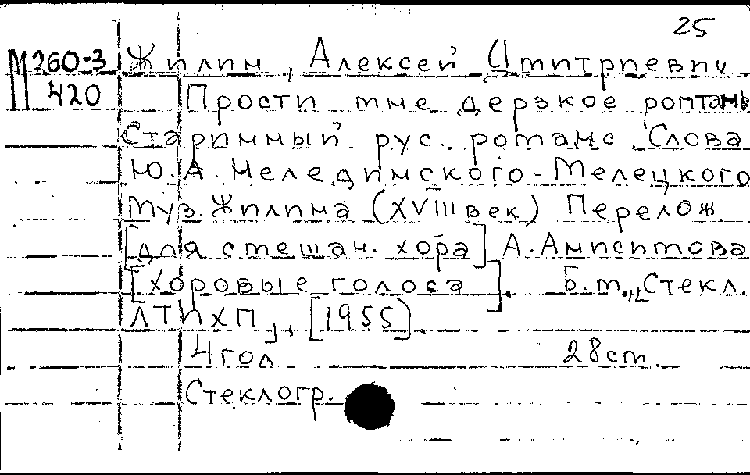 25
М260-3 Жилин, Алексей Дмитриевич
420 Прости мне дерзкое роптань
Старинный рус. романс. Слова
Ю.А. Нелединского-Мелецкого
Муз. Жилина (XVIII век) Перелож.
[для смешан. хора] А. Анисимова
[Хоровые голоса]. Б.м., "Стекл.
ЛТИХП", [1955].
4 гол 28 см.
Стеклогр.